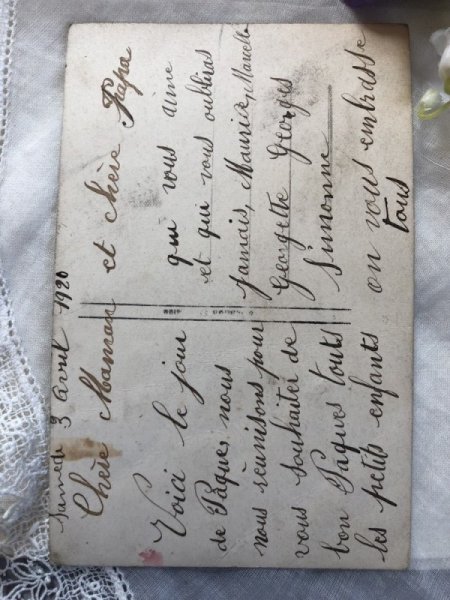 samedi 3 avril 1920
Chère Maman et chère Papa
Voici le jour
de Pâque, nous
nous rèunisons pour
vous souhaiter de
bon Pâques touts
les petits enfants
qui vous aime
et qui vous oubliras
jamais, Maurice, Marcelle
Georgette Georges
Simonne
on vous embrasse
tous